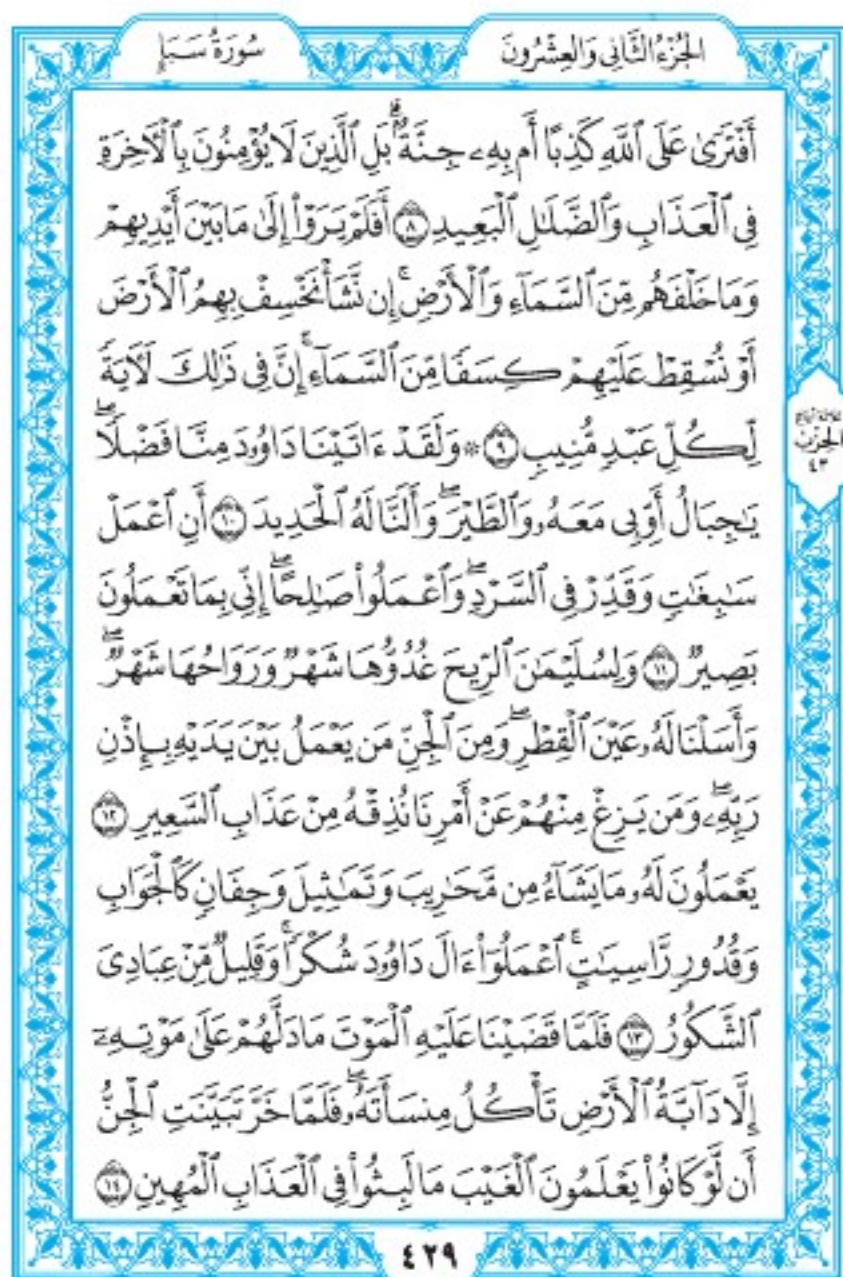 الجُزْءُ الثَّانِي وَالعِشْرُونَ
سُورَةُ سَبَإٍ
أَفْتَرَىٰ عَلَى ٱللَّهِ كَذِبًا أَم بِهِۦ جِنَّةٌۗ بَلِ ٱلَّذِينَ لَا يُؤْمِنُونَ بِٱلْأَخِرَةِ
فِى ٱلْعَذَابِ وَٱلضَّلَٰلِ ٱلْبَعِيدِ ٨ أَفَلَمْ يَرَوْا۟ إِلَىٰ مَا بَيْنَ أَيْدِيهِمْ
وَمَا خَلْفَهُم مِّنَ ٱلسَّمَآءِ وَٱلْأَرْضِۚ إِن نَّشَأْ نَخْسِفْ بِهِمُ ٱلْأَرْضَ
أَوْ نُسْقِطْ عَلَيْهِمْ كِسَفًا مِّنَ ٱلسَّمَآءِۚ إِنَّ فِى ذَٰلِكَ لَأَيَةً
لِّكُلِّ عَبْدٍ مُّنِيبٍ ٩ ۞ وَلَقَدْ ءَاتَيْنَا دَاوُۥدَ مِنَّا فَضْلًاۖ
يَٰجِبَالُ أَوِّبِى مَعَهُۥ وَٱلطَّيْرَۖ وَأَلَنَّا لَهُ ٱلْحَدِيدَ ١٠ أَنِ ٱعْمَلْ
سَٰبِغَٰتٍ وَقَدِّرْ فِى ٱلسَّرْدِۖ وَٱعْمَلُوا۟ صَٰلِحًاۖ إِنِّى بِمَا تَعْمَلُونَ
بَصِيرٌ ١١ وَلِسُلَيْمَٰنَ ٱلرِّيحَ غُدُوُّهَا شَهْرٌ وَرَوَاحُهَا شَهْرٌۖ
وَأَسَلْنَا لَهُۥ عَيْنَ ٱلْقِطْرِۖ وَمِنَ ٱلْجِنِّ مَن يَعْمَلُ بَيْنَ يَدَيْهِ بِإِذْنِ
رَبِّهِۦۖ وَمَن يَزِغْ مِنْهُمْ عَنْ أَمْرِنَا نُذِقْهُ مِنْ عَذَابِ ٱلسَّعِيرِ ١٢
يَعْمَلُونَ لَهُۥ مَا يَشَآءُ مِن مَّحَٰرِيبَ وَتَمَٰثِيلَ وَجِفَانٍ كَٱلْجَوَابِ
وَقُدُورٍ رَّاسِيَٰتٍۚ ٱعْمَلُوٓا۟ ءَالَ دَاوُۥدَ شُكْرًاۚ وَقَلِيلٌ مِّنْ عِبَادِىَ
ٱلشَّكُورُ ١٣ فَلَمَّا قَضَيْنَا عَلَيْهِ ٱلْمَوْتَ مَا دَلَّهُمْ عَلَىٰ مَوْتِهِۦٓ
إِلَّا دَآبَّةُ ٱلْأَرْضِ تَأْكُلُ مِنسَأَتَهُۥۖ فَلَمَّا خَرَّ تَبَيَّنَتِ ٱلْجِنُّ
أَن لَّوْ كَانُوا۟ يَعْلَمُونَ ٱلْغَيْبَ مَا لَبِثُوا۟ فِى ٱلْعَذَابِ ٱلْمُهِينِ ١٤
الحزب
٤٣
٤٢٩